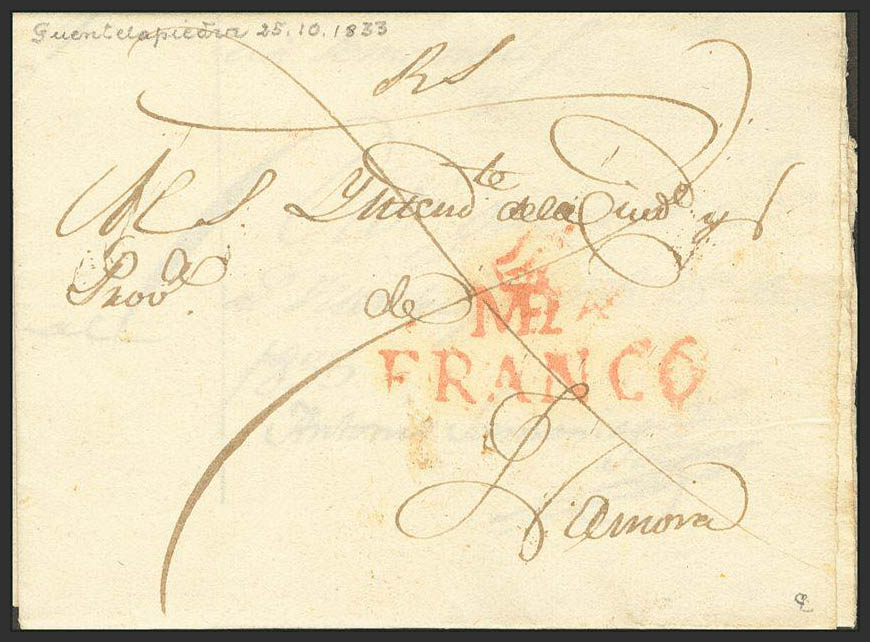 Fuentelapiedra 25.10.1833
RS
M S. Yntend.te de la Ciud.d y
Prov.a de
MR
FRANCO
Zamora